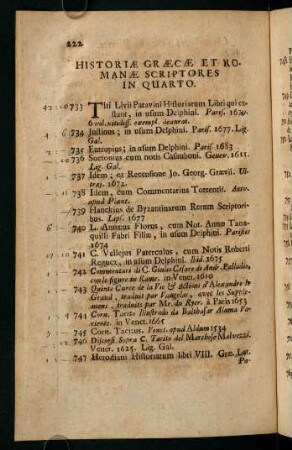 222
HISTORIÆ GRÆCÆ ET RO-
MANÆ SCRIPTORES
IN QUARTO.
733 Titi Livii Patavini Historiarum Libri qui ex-
stant, in usum Delphini. Paris.
6 vol. nitidiss. exempl. inaurat.
6 734 Justinus; in usum Delphini. Paris. 1677. Lig.
Gal.
735 Eutropius; in usum Delphini. Paris 1683
736 Suetonius cum notis Casauboni. Genev. 1611.
Lig. Gal.
737 Idem; ex Recensione Jo. Georg. Grævii. Ul-
traj. 1672.
738 Idem, cum Commentariis Torrentii. Antu.
apud Plant.
739 Hanckius de Byzantinarum Rerum Scriptori-
bus. Lips. 1677
740 L. Annæus Florus, cum Not. Anno Tana-
quilli Fabri Filiæ, in usum Delphini. Parisiis
1674
741 C. Vellejus Paterculus, cum Notis Roberti
Roguez, in usum Delphini. Ibid. 1675
742 Commentari di C. Giulio Cesare di Andr. Palladio,
con le figure in Rame. in Venet. 1619
743 Quinte Curce de la Vie & Actions d'Alexandre le
Grand, traduit par Vaugelas, avec les Supple-
mens, traduits par Mr. du Ryer. à Paris 1653
744 Corn. Tacito Illustrado da Balthasar Alamo Va-
rienti. in Venet. 1665
745 Corn. Tacitus. Venet. apud Aldum 1534
746 Discorsi Sopra C. Tacito del Marchese Malvezzi.
Venet. 1625. Lig. Gal.
747 Herodiani Historiarum libri VIII. Græ. Lat.
Pa-